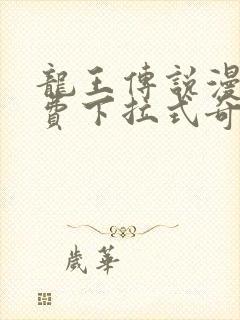 龍王傳說漫
費下拉式奇
歲華